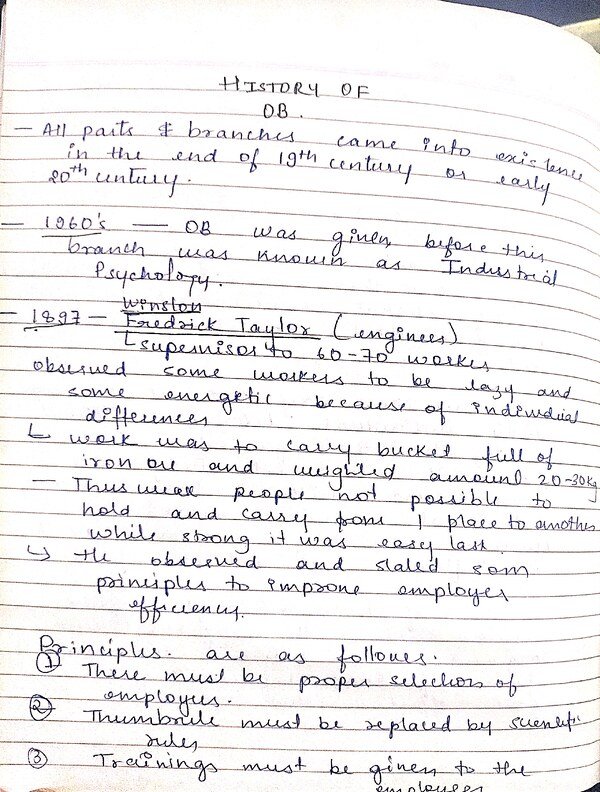 HISTORY OF
OB.
- All parts & branches came into existence
in the end of 19th century or early
20th century.
- 1960's - OB was given, before this
branch was known as Industrial
Psychology.
Winston
- 1897 - Fredrick Taylor (engineer)
supervisor to 60-70 workers
observed some workers to be lazy and
some energetic because of individual
differences
work was to carry bucket full of
iron ore and weighted amount 20-30kg
- Thus weak people not possible to
hold and carry from 1 place to another
while strong it was easy task.
He observed and stated som
principles to improve employee
efficiency.
Principles. are as follows.
① There must be proper selection of
employees.
② Thumbrule must be replaced by scientific
rules
③ Trainings must be given to the
employees